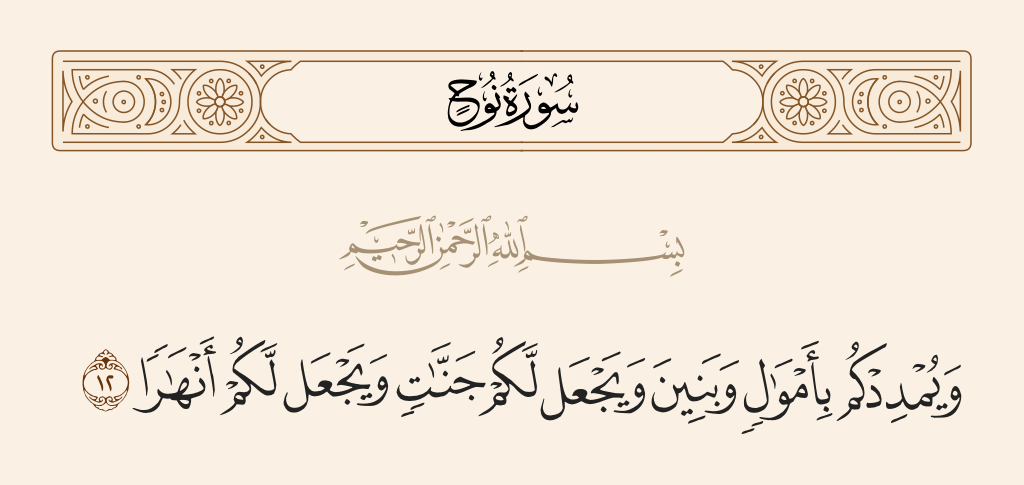 سُورَةُ نُوحٍ
بِسْمِ ٱللَّهِ ٱلرَّحْمَٰنِ ٱلرَّحِيمِ
وَيُمْدِدْكُم بِأَمْوَٰلٍ وَبَنِينَ وَيَجْعَل لَّكُمْ جَنَّٰتٍ وَيَجْعَل لَّكُمْ أَنْهَٰرًا ١٢